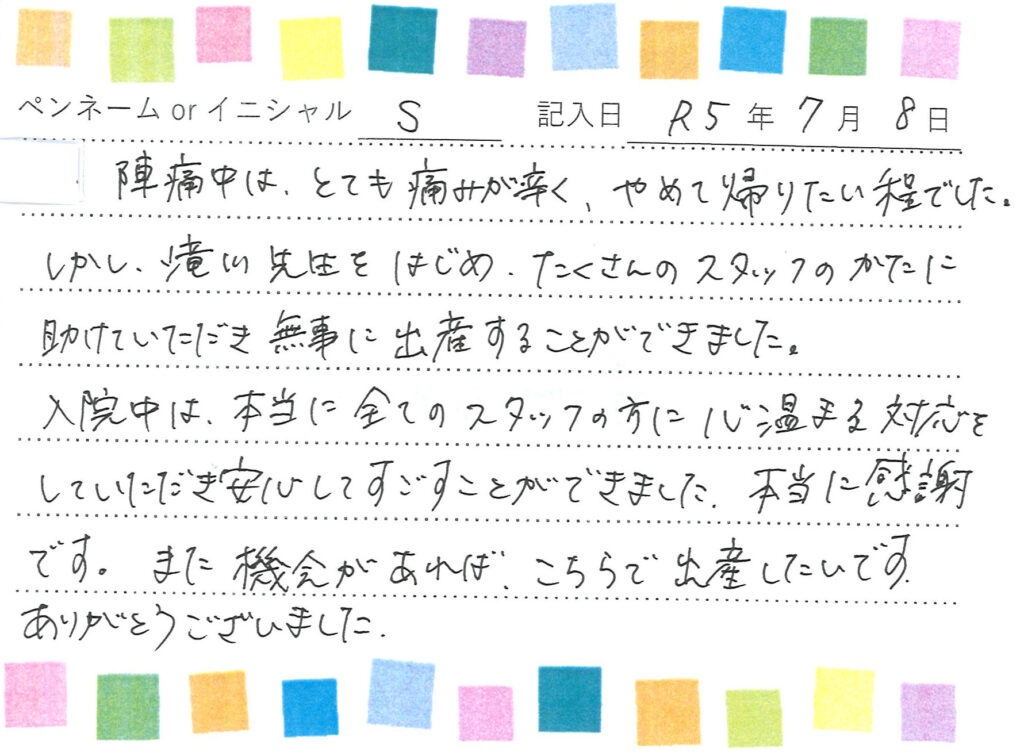 ペンネーム or イニシャル S 記入日 R5 年 7 月 8 日
陣痛中は、とても痛みが辛く、やめて帰りたい程でした。
しかし、滝川先生をはじめ、たくさんのスタッフのかたに
助けていただき無事に出産することができました。
入院中は、本当に全てのスタッフの方に心温まる対応を
していただき安心してすごすことができました。本当に感謝
です。また機会があれば、こちらで出産したいです。
ありがとうございました。